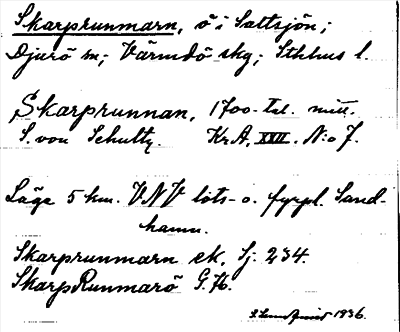 Skarprunmarn, ö i Saltsjön;
Djurö sn; Värmdö skg; Sthlms l.
Skarprunnan, 1700-tal. mitt.
S. von Schultz. Kr. A. XXII. N:o 7.
Läge 5 km. VNV lots- o. fyrpl. Sand-
hamn.
Skarprunmarn ek. Sj. 234.
SkarpRunmarö G.K.
1936.